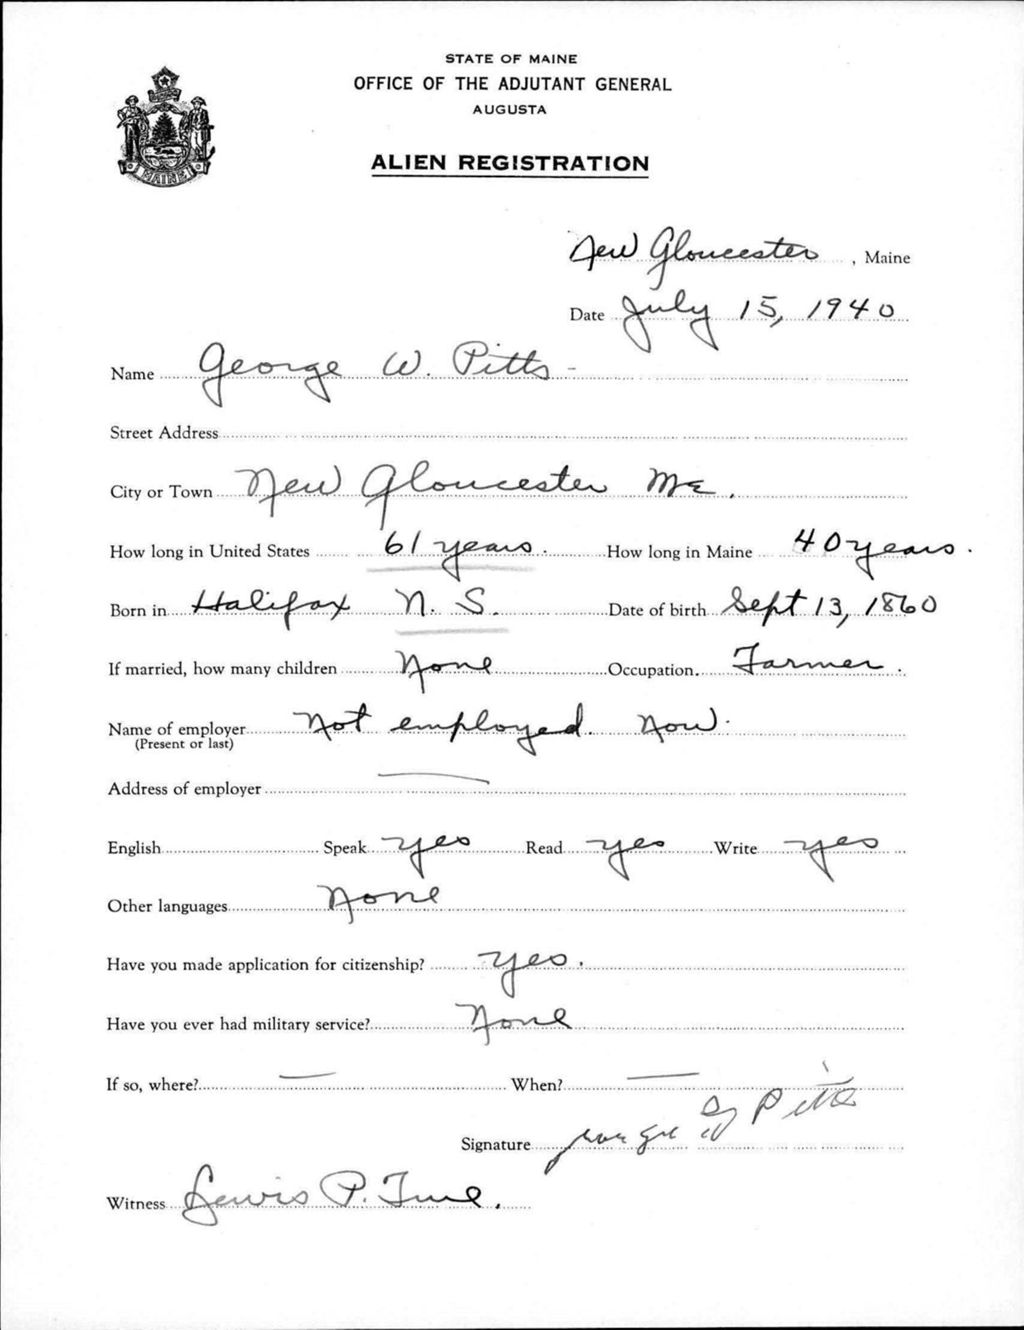 STATE OF MAINE
OFFICE OF THE ADJUTANT GENERAL
AUGUSTA
ALIEN REGISTRATION
MAINE
New Gloucester, Maine
Date July 15, 1940
Name George W. Pitts
Street Address
City or Town New Gloucester Me.
How long in United States 61 years. How long in Maine 40 years.
Born in Halifax N. S. Date of birth Sept 13, 1860
If married, how many children None Occupation. Farmer.
Name of employer Not employed. Now.
(Present or last)
Address of employer
English Speak yes Read yes Write yes
Other languages None
Have you made application for citizenship? yes.
Have you ever had military service? None
If so, where? When?
Signature George W Pitts
Witness Lewis P. True.